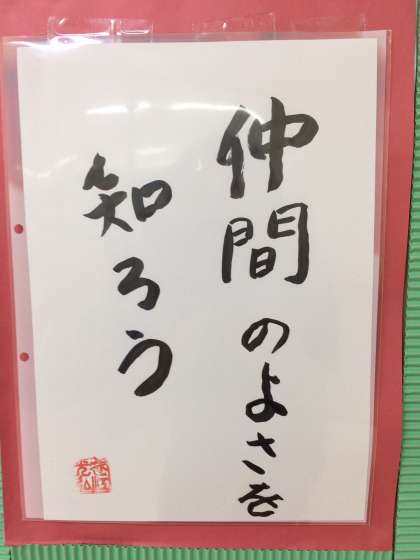 仲間のよさを
知ろう